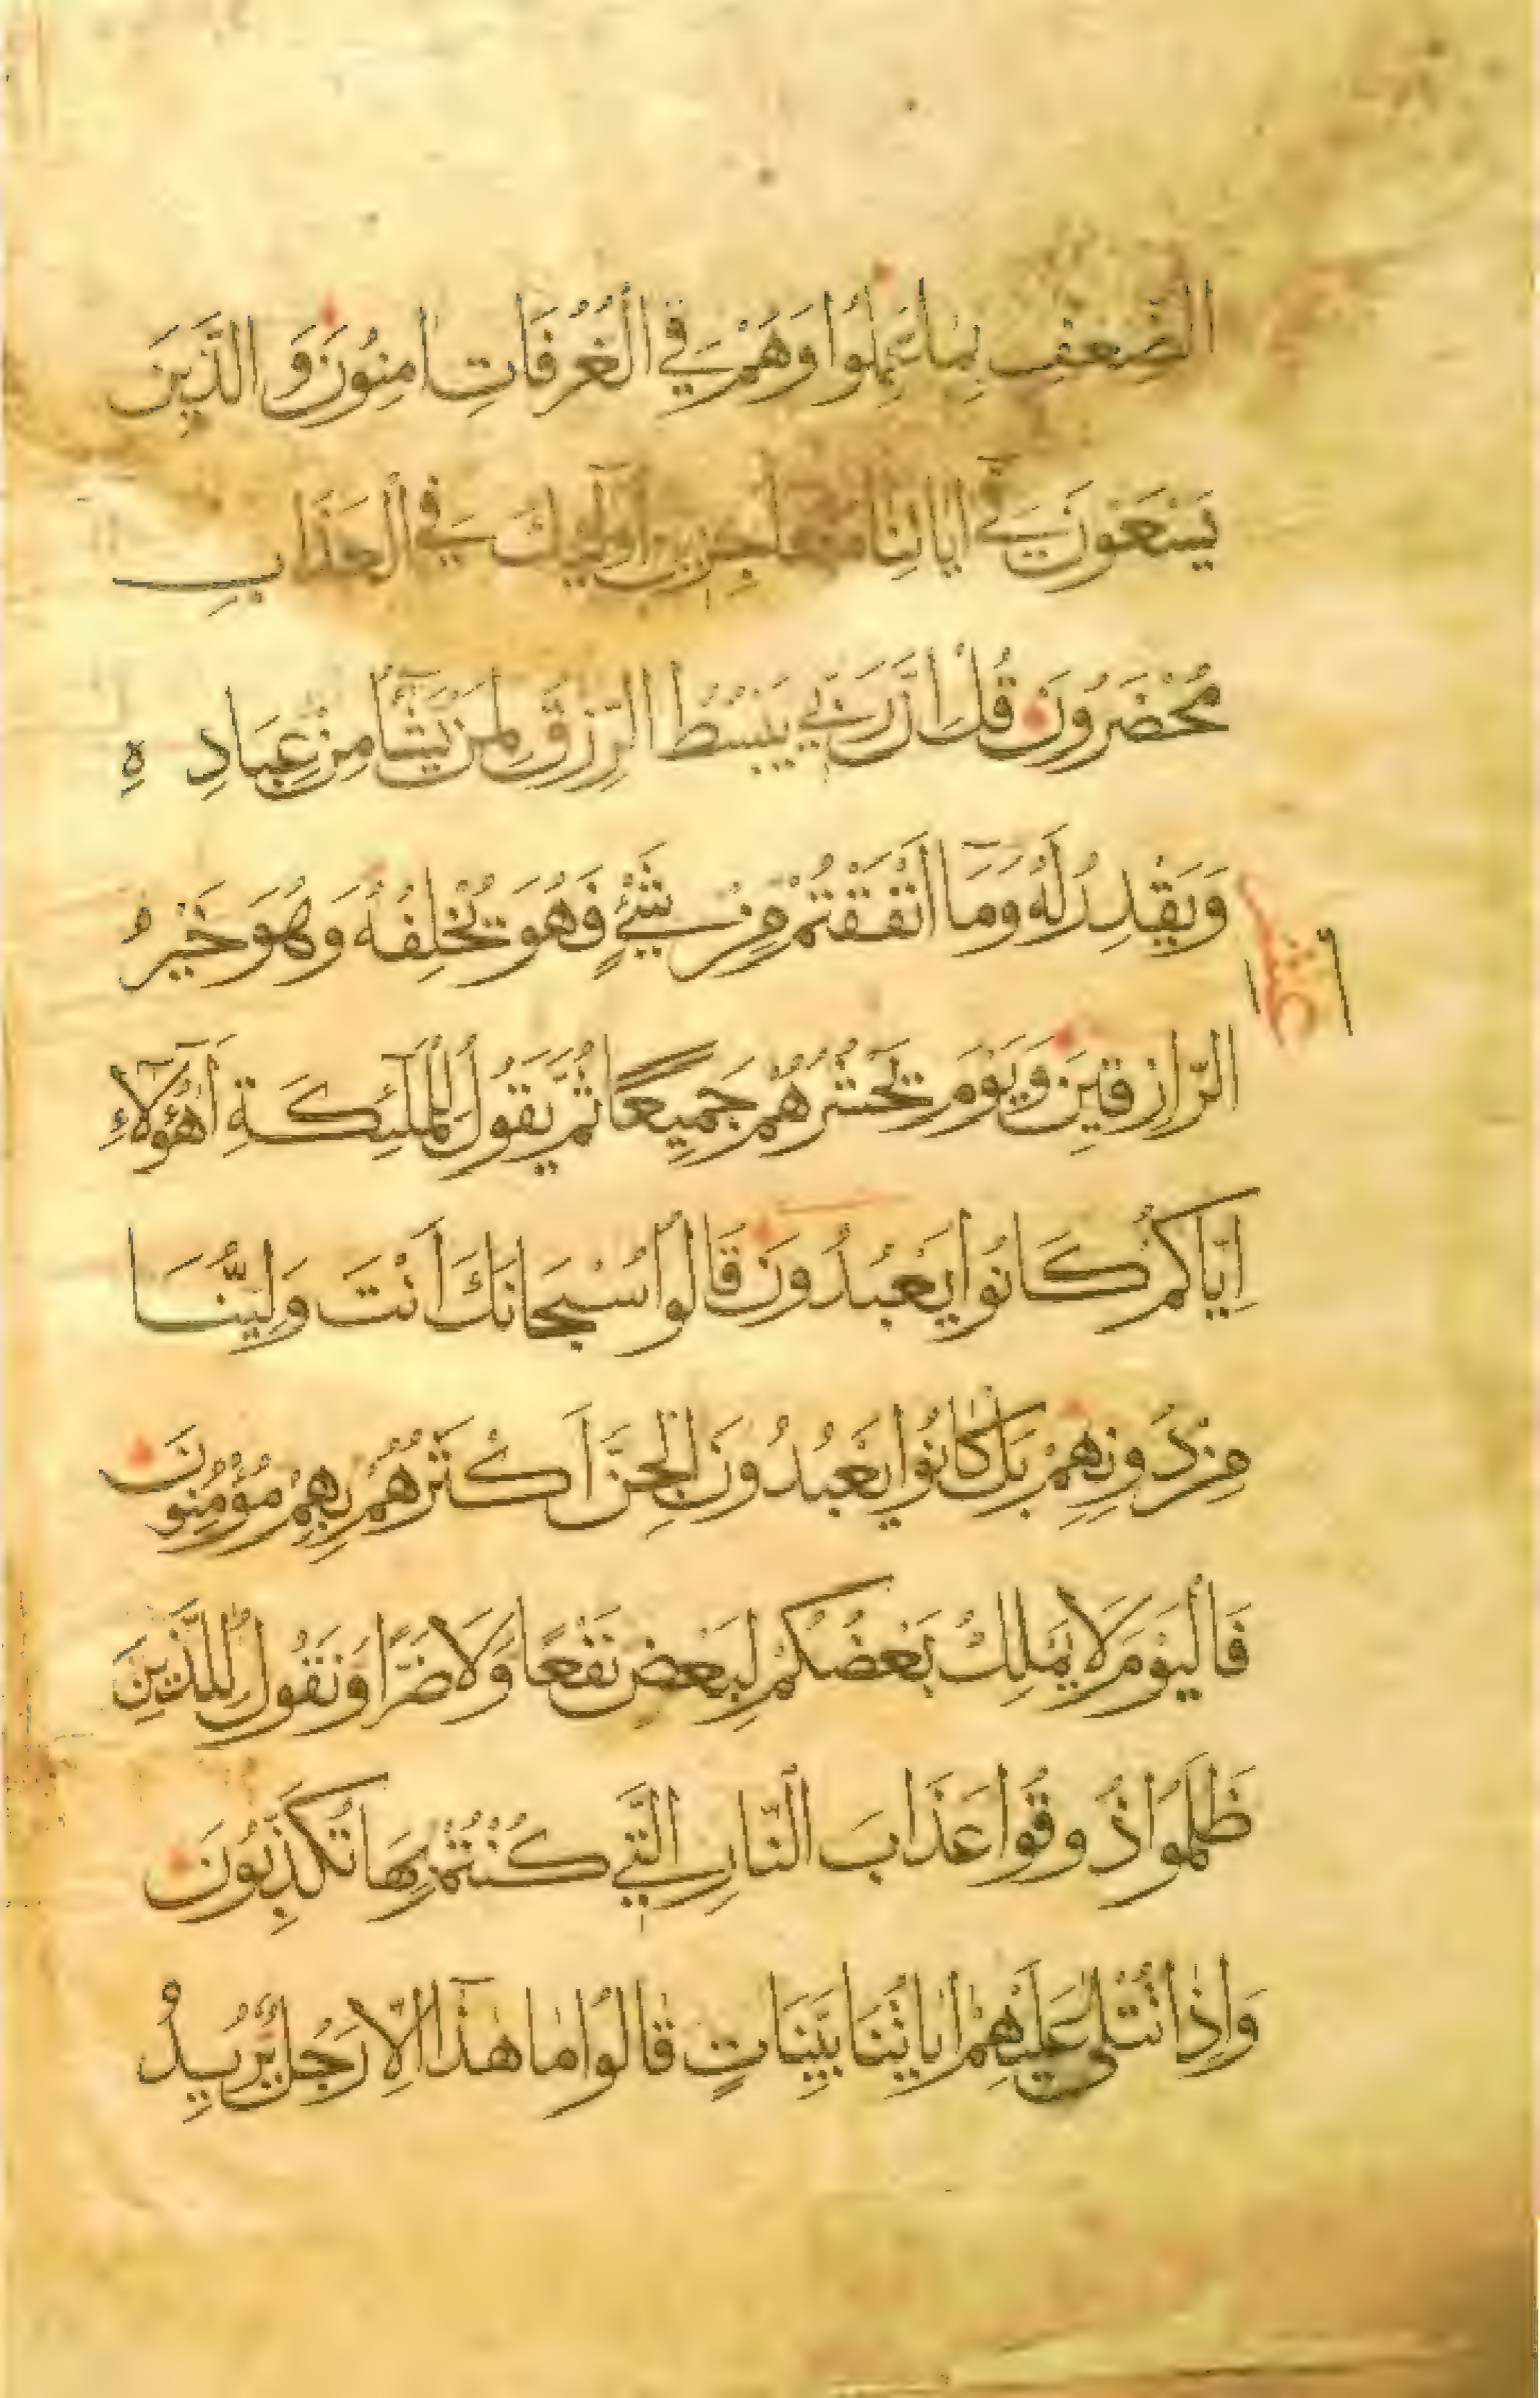 الضِّعْفِ بِمَا عَمِلُوا وَهُمْ فِي الْغُرُفَاتِ اٰمِنُونَ وَالَّذِينَ
يَسْعَوْنَ فِي اٰيَاتِنَا مُعَاجِزِينَ اُولٰٓئِكَ فِي الْعَذَابِ
مُحْضَرُونَ قُلْ اِنَّ رَبِّي يَبْسُطُ الرِّزْقَ لِمَنْ يَشَٓاءُ مِنْ عِبَادِهِ
وَيَقْدِرُ لَهُ وَمَٓا اَنْفَقْتُمْ مِنْ شَيْءٍ فَهُوَ يُخْلِفُهُ وَهُوَ خَيْرُ
الرَّازِقِينَ وَيَوْمَ نَحْشُرُهُمْ جَمِيعًا ثُمَّ يَقُولُ لِلْمَلٰٓئِكَةِ اَهٰٓؤُلَٓاءِ
اِيَّاكُمْ كَانُوا يَعْبُدُونَ قَالُوا سُبْحَانَكَ اَنْتَ وَلِيُّنَا
مِنْ دُونِهِمْ بَلْ كَانُوا يَعْبُدُونَ الْجِنَّ اَكْثَرُهُمْ بِهِمْ مُؤْمِنُونَ
فَالْيَوْمَ لَا يَمْلِكُ بَعْضُكُمْ لِبَعْضٍ نَفْعًا وَلَا ضَرًّا وَنَقُولُ لِلَّذِينَ
ظَلَمُوا ذُوقُوا عَذَابَ النَّارِ الَّتِي كُنْتُمْ بِهَا تُكَذِّبُونَ
وَاِذَا تُتْلٰى عَلَيْهِمْ اٰيَاتُنَا بَيِّنَاتٍ قَالُوا مَا هٰذَٓا اِلَّا رَجُلٌ يُرِيدُ